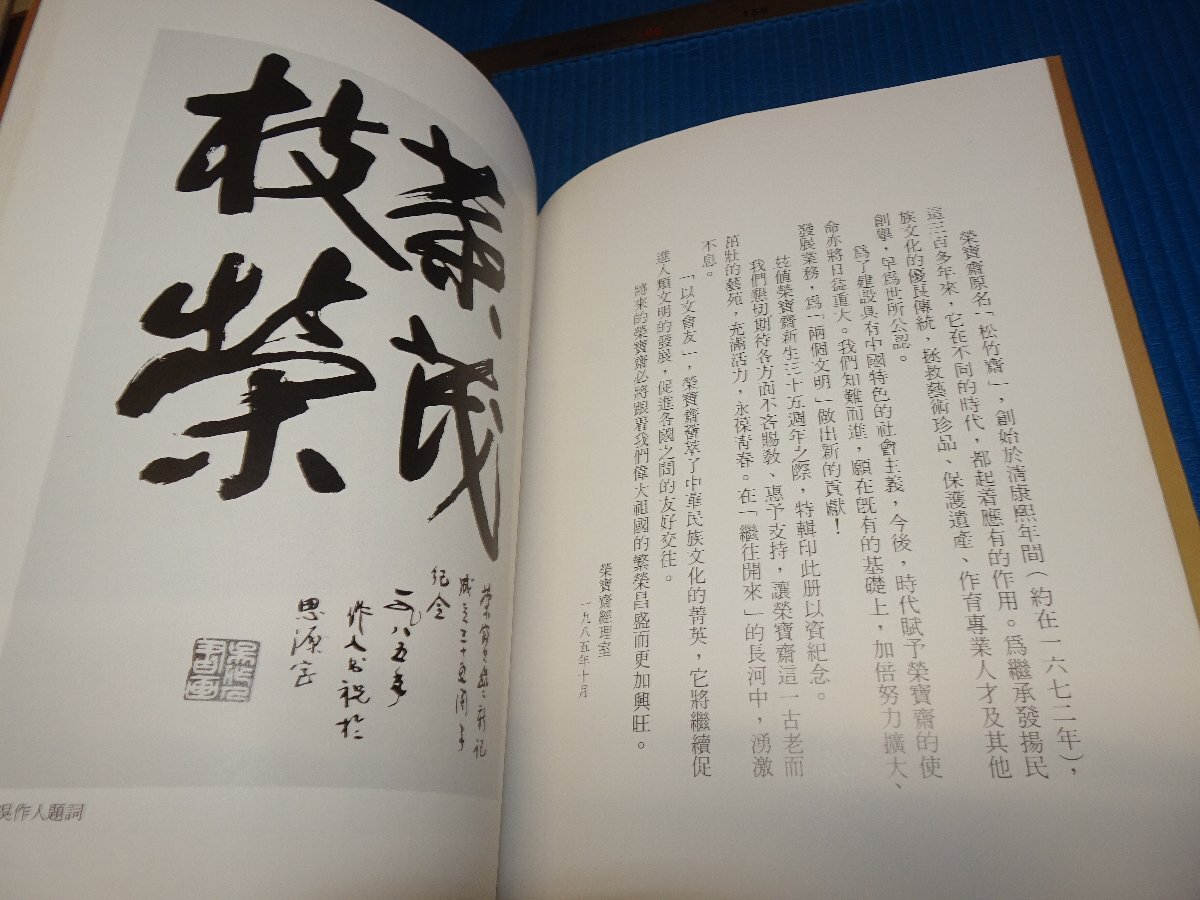 榮寶齋原名「松竹齋」，創始於清康熙年間（約在一六七二年），
這三百多年來，它在不同的時代，都起着應有的作用。爲繼承發揚民
族文化的優良傳統，拯救藝術珍品、保護遺產、作育專業人才及其他
創舉，早爲世所公認。
爲了建設具有中國特色的社會主義，今後，時代賦予榮寶齋的使
命亦將日益重大。我們知難而進，願在既有的基礎上，加倍努力擴大、
發展業務，爲「兩個文明」做出新的貢獻！
茲值榮寶齋新生三十五週年之際，特輯印此册以資紀念。
我們懇切期待各方面不吝賜敎、惠予支持，讓榮寶齋這一古老而
茁壯的藝苑，充滿活力，永葆青春。在「繼往開來」的長河中，湧激
不息。
「以文會友」，榮寶齋薈萃了中華民族文化的菁英，它將繼續促
進人類文明的發展，促進各國之間的友好交往。
將來的榮寶齋必將跟着我們偉大祖國的繁榮昌盛而更加興旺。
榮寶齋經理室
一九八五年十月
葉茂
枝榮
榮寶齋新記
成立三十五周年
紀念
一九八五年
作人书祝於
思源室
吳作人題詞
150